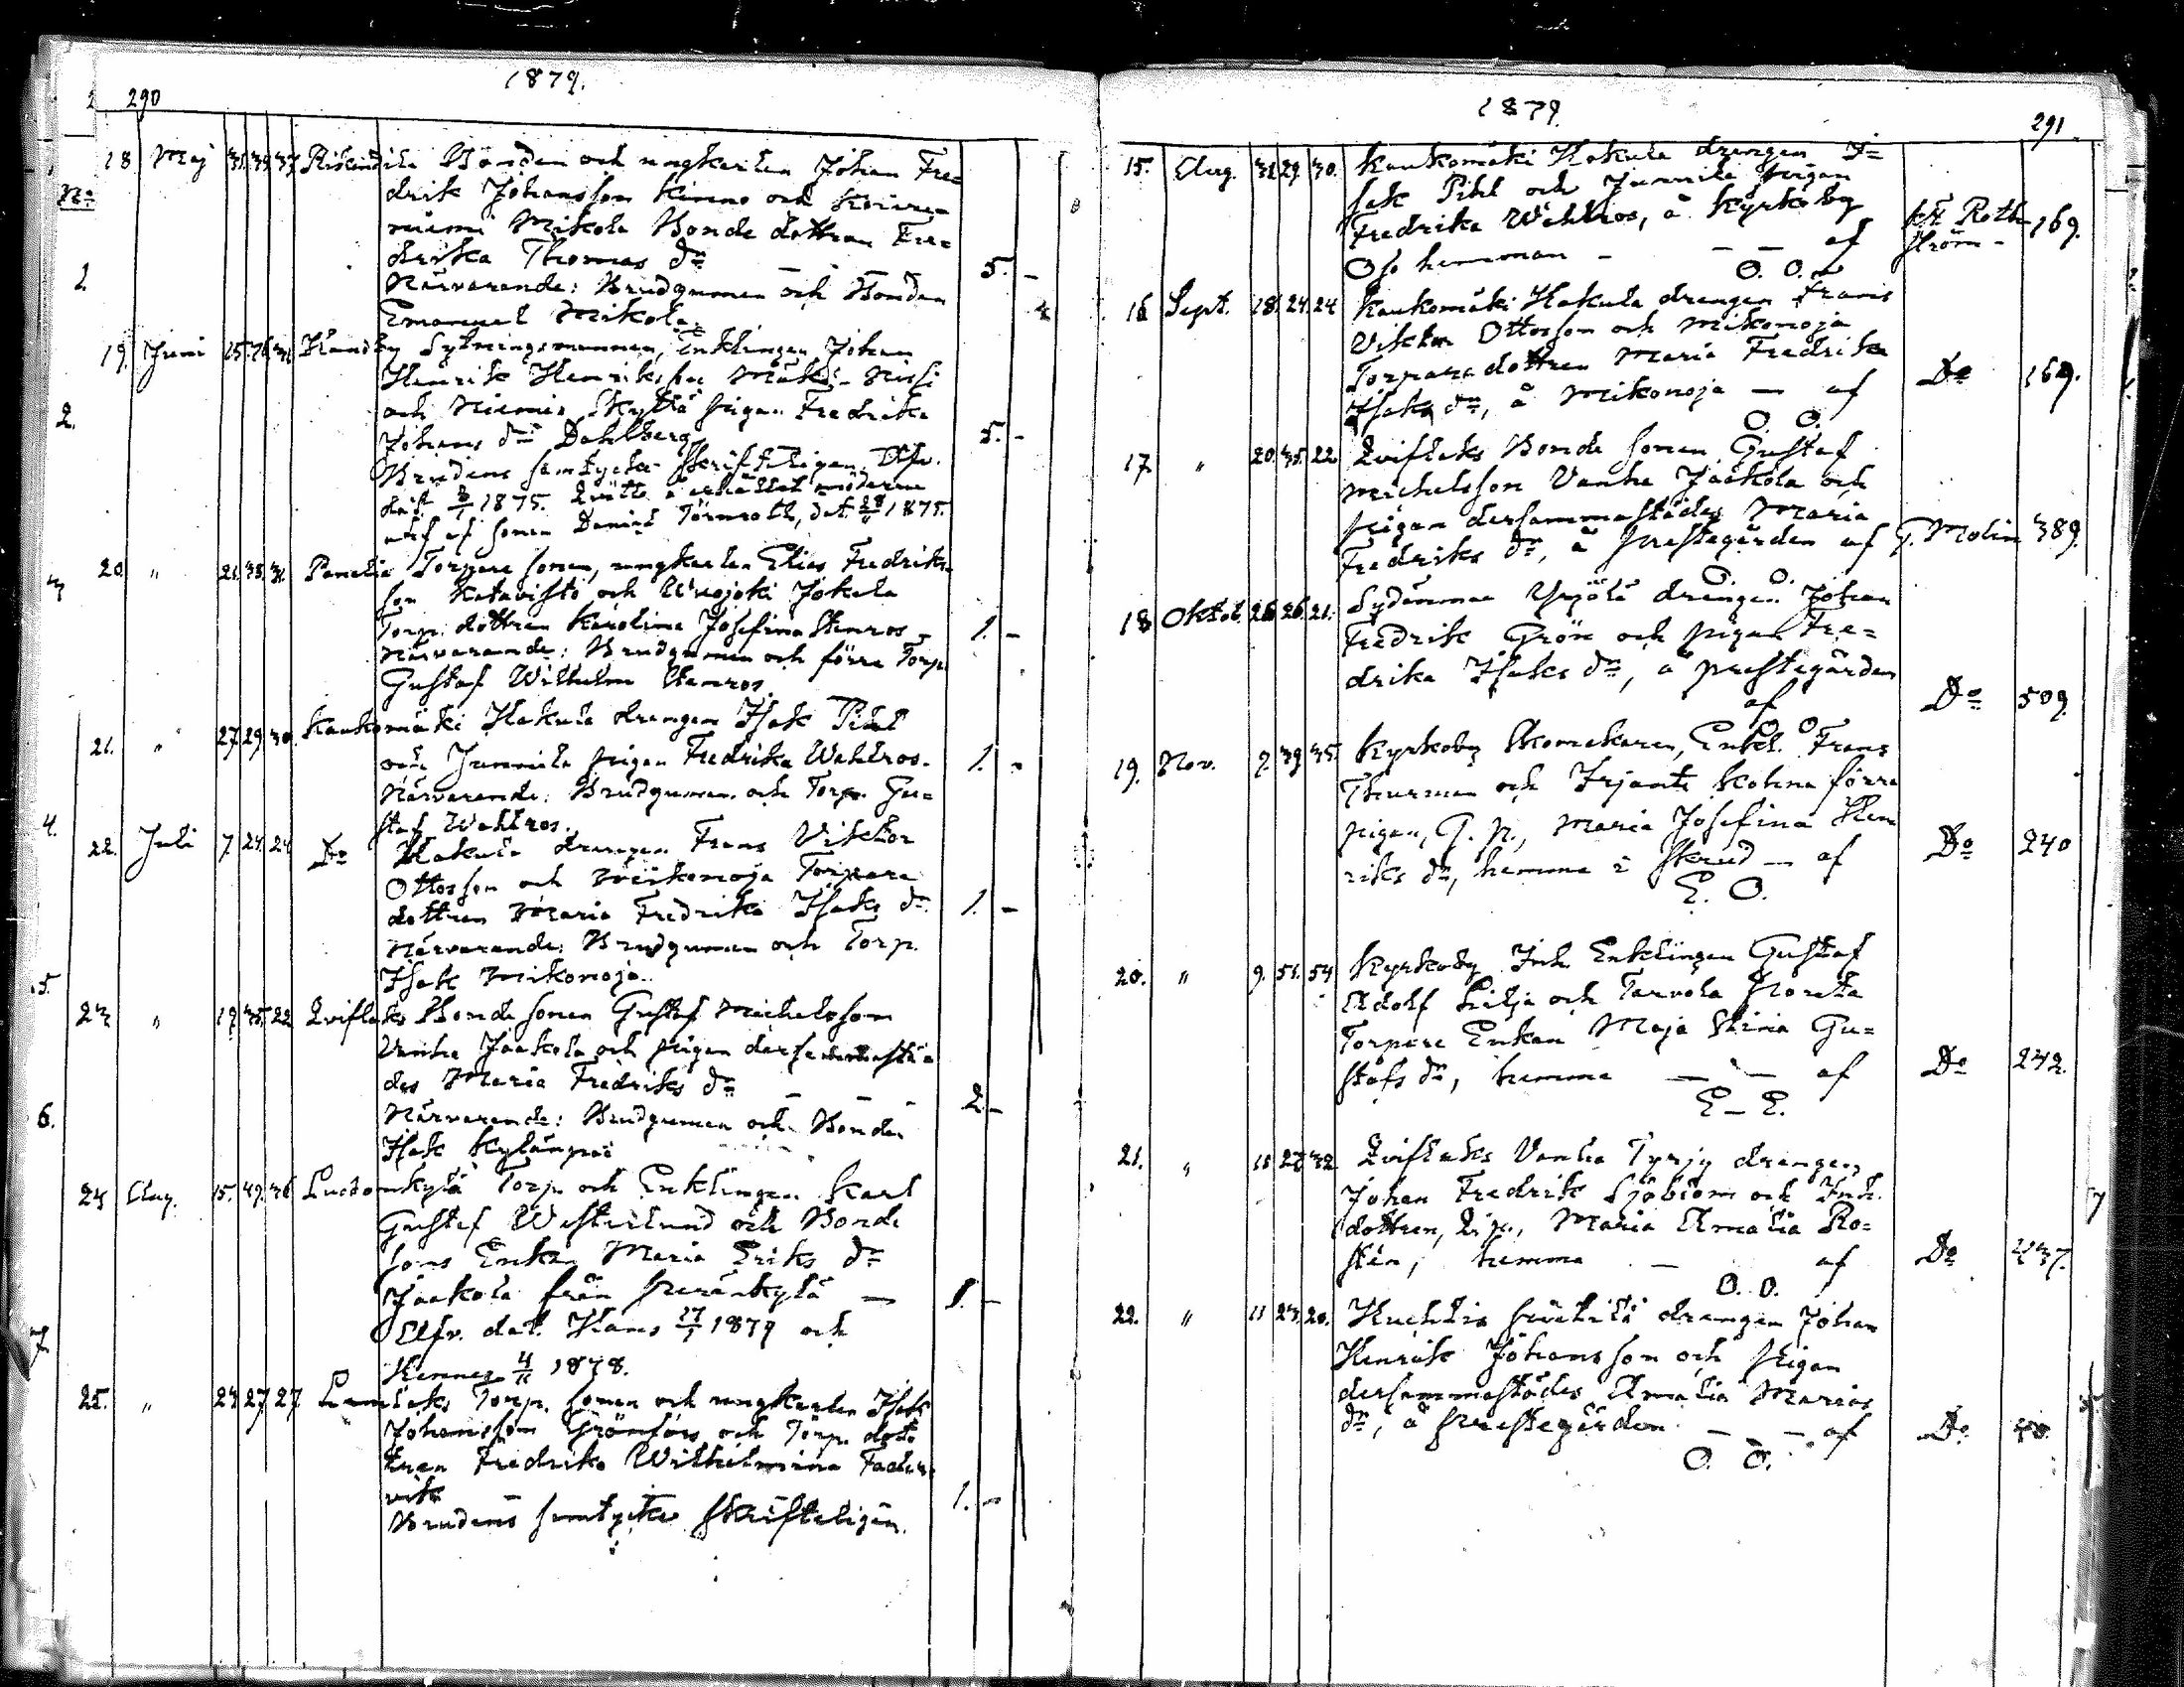 290
1879.
18. Maj 31. 39. 37. Bonden och ungkarlen Johan Fre=
drik Johansson Kinno och Koive-
niemi Mikola Bonde dottren Fre=
drika Thomas dr 5. -
Närvarande: Brudgumen och Bonden
Emanuel Mikola.
19. Juni 15. Sytningsmannen, Enklingen Johan
Henrik Henriksson
och Niemis Skyttä pigan Fredrika
Johans dr Dahlberg 5. -
Brudens samtycke skriftligen. Afv.
dat. 1875.
arf af sonen Daniel Törnroth, dat. 1875.
20. " 21. 33. 31. Panelia Torpare sonen, ungkarlen Elias Fredriks-
son Katavisto och Jokela
Torp. dottren Karolina Josefina Stenros 1. -
Närvarande: Brudgumen och förra Torp.
Gustaf Wilhelm Stenros.
21. " 27. 29. 30. Kaukomäki Hakula drengen Isak Pihl
och Junnila pigan Fredrika Wahlros. 1. -
Närvarande: Brudguman och Torp. Gu=
staf Wahlros.
22. Juli 7. 24. 24 Do Hakula drengen Frans Viktor
Ottosson och Mikonoja Torpare
dottren Maria Fredrika Isaks dr. 1. -
Närvarande: Brudguman och Torp.
Isak Mikonoja.
23. " 19. 35. 22 Qviflaks Bonde sonen Gustaf Michelsson
Vanha Jaakola och pigan dersammastä=
des Maria Fredriks dr 2. -
Närvarande: Brudguman och Bonden
Isak Kylänpää
24. Aug. 15. 49. 36 Torp. och Enklingen Karl
Gustaf Westerlund och Bonde
sons Enkan Maria Eriks dr
Jaakola från Peränkylä - 1. -
Afv. dat. 1879 och
1878.
25. " 24 27 27 Lamlaks Torp. sonen och ungkarlen Isak
Johansson Grönfors och Torp. dot-
tren Fredrika Wilhelmina
1. -
Brudens samtycke skriftligen.
1879.
291
15. Aug. 31. 29. 30. Kaukomäki Hakula drengen I=
sak Pihl och Junnila pigan
Fredrika Wahlros, å Kyrkoby
hemman - - - af Roth-
ström - 169.
O. O.
16 Sept. 18. 24. 24 Kaukomäki Hakula drengen Frans
Viktor Ottosson och Mikonoja
Torpare dottren Maria Fredrika
Isaks dr, å Mikonoja - af Do 169.
O. O.
17. " 20. 35. 22 Qviflaks Bonde sonen Gustaf
Michelsson Vanha Jaakola och
pigan dersammastädes Maria
Fredriks dr, å prestegården af G. Molin 389.
O. O.
18 Oktob. 26 26. 21. Sydänmaa Yrjölä drengen Johan
Fredrik Grön och pigan Fre=
drika Isaks dr, å prestegården
af Do 509.
O. O.
19. Nov. 9. 39 35. Kyrkoby Skomakaren, Enkl. Frans
Thurman och Irjante förra
pigan, G. p., Maria Josefina Hen
riks dr, hemma i skrud - af Do 240
E. O.
20. " 9. 51. 54 Kyrkoby Inh. Enklingen Gustaf
Adolf Lilja och Tarvola
Torpare Enkan Maja Stina Gu=
stafs dr, hemma - - af Do 242.
E - E.
21. " 11 27 32 Qviflaks Vanha Tyrjy drengen
Johan Fredrik Sjöblom och Inh.
dottren, Maria Amalia Ro=
stén, hemma - af Do 237.
O. O.
22. " 11 23. 20. drengen Johan
Henrik Johansson och pigan
dersammastädes Amalia Marias
dr, å prestegården - - af Do
O. O.